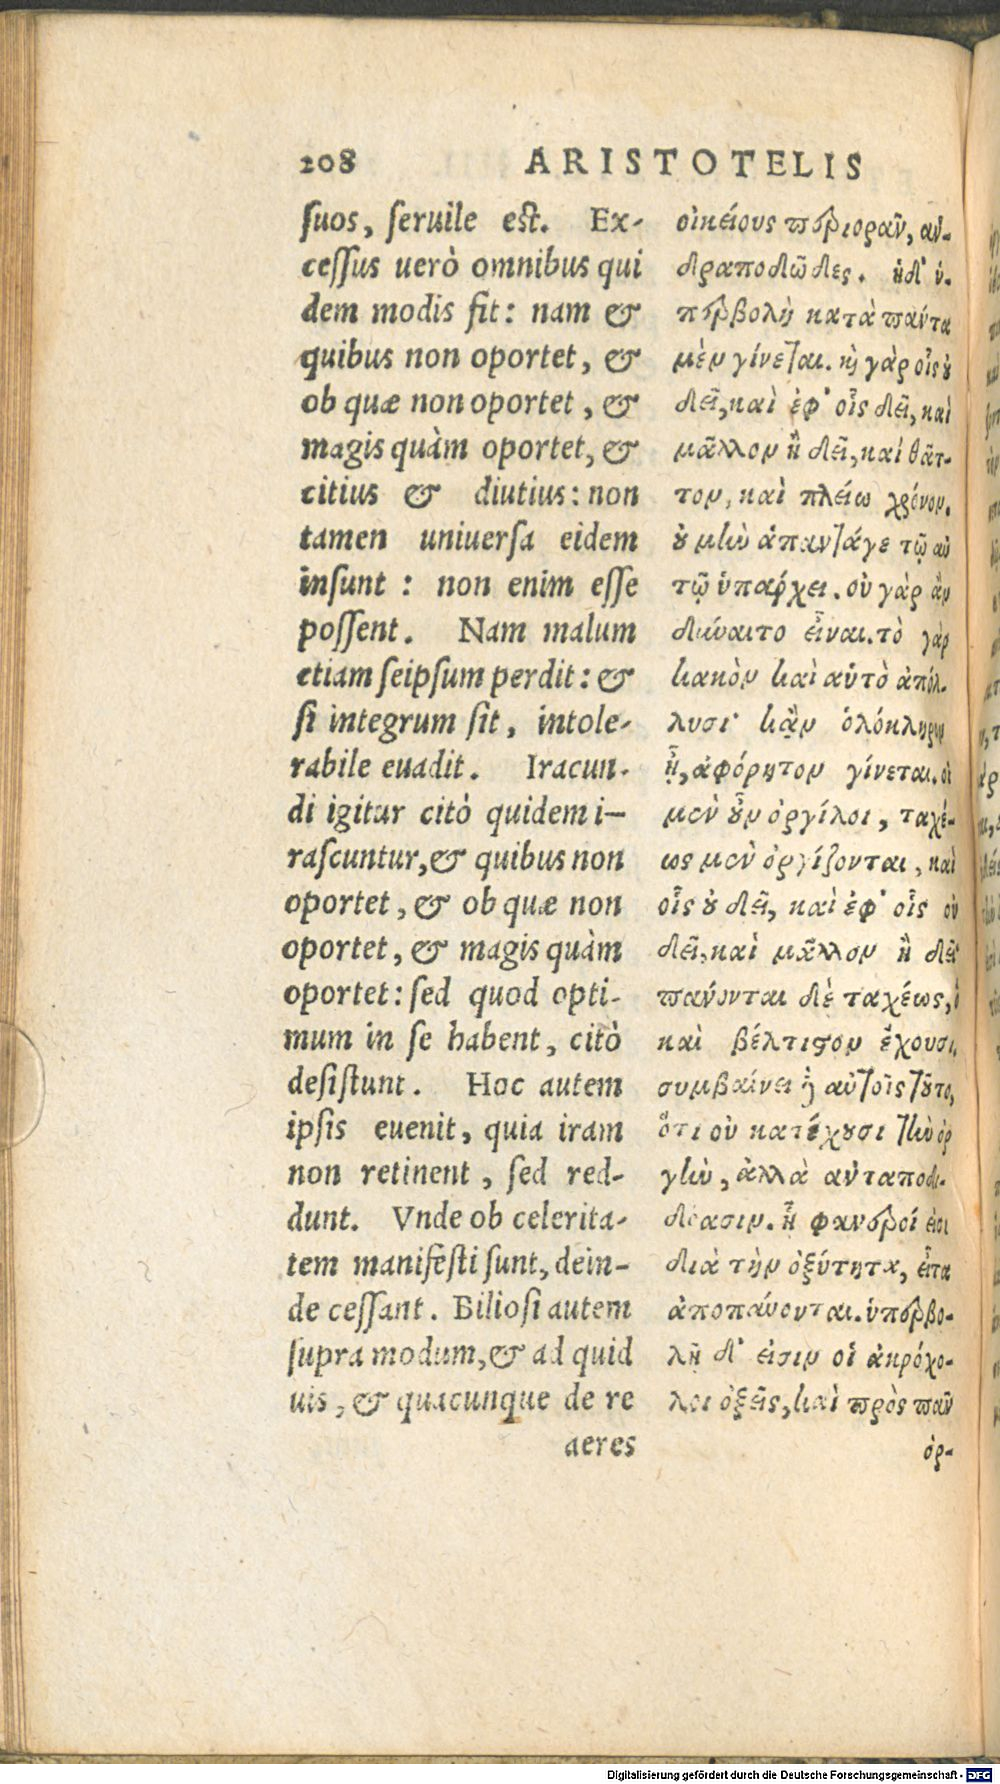 208 ARISTOTELIS
suos, seruile est. Ex-
cessus uerò omnibus qui
dem modis fit: nam &
quibus non oportet, &
ob quæ non oportet, &
magis quàm oportet, &
citius & diutius: non
tamen uniuersa eidem
insunt : non enim esse
possent. Nam malum
etiam seipsum perdit: &
si integrum sit, intole-
rabile euadit. Iracun-
di igitur citò quidem i-
rascuntur, & quibus non
oportet, & ob quæ non
oportet, & magis quàm
oportet: sed quod opti-
mum in se habent, citò
desistunt. Hoc autem
ipsis euenit, quia iram
non retinent, sed red-
dunt. Vnde ob celerita-
tem manifesti sunt, dein-
de cessant. Biliosi autem
supra modum, & ad quid
uis, & quacunque de re
aeres
οἰκείους περιορᾶν, ἀν-
δραποδῶδες. ἡ δ' ὑ-
περβολὴ κατὰ πάντα
μὲν γίνεται. κὴ γὰρ οἷς οὐ
δεῖ, καὶ ἐφ' οἷς δεῖ, καὶ
μᾶλλον ἢ δεῖ, καὶ θᾶτ-
τον, καὶ πλείω χρόνον.
οὐ μὴν ἅπαντάγε τῷ αὐ
τῷ ὑπάρχει. οὐ γὰρ ἂν
δύναιτο εἶναι. τὸ γὰρ
κακὸν καὶ αὑτὸ ἀπόλ-
λυσι κἂν ὁλόκληρον
ᾖ, ἀφόρητον γίνεται. οἱ
μὲν οὖν ὀργίλοι, ταχέ-
ως μὲν ὀργίζονται, καὶ
οἷς οὐ δεῖ, καὶ ἐφ' οἷς οὐ
δεῖ, καὶ μᾶλλον ἢ δεῖ
παύονται δὲ ταχέως, ὃ
καὶ βέλτιστον ἔχουσι,
συμβαίνει δὲ αὐτοῖς τοῦτο,
ὅτι οὐ κατέχουσι τὴν ὀρ
γὴν, ἀλλὰ ἀνταποδι-
δόασιν. ᾗ φανεροί εἰσι
διὰ τὴν ὀξύτητα, εἶτα
ἀποπαύονται. ὑπερβο-
λῇ δ' εἰσιν οἱ ἀκρόχο-
λοι ὀξεῖς, καὶ πρὸς πᾶν
ὀρ-
Digitalisierung gefördert durch die Deutsche Forschungsgemeinschaft - DFG